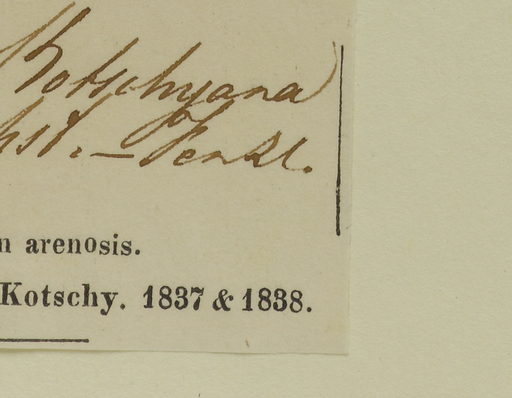 Kotschyana
hst. – Fenzl.
n arenosis.
Kotschy. 1837 & 1838.